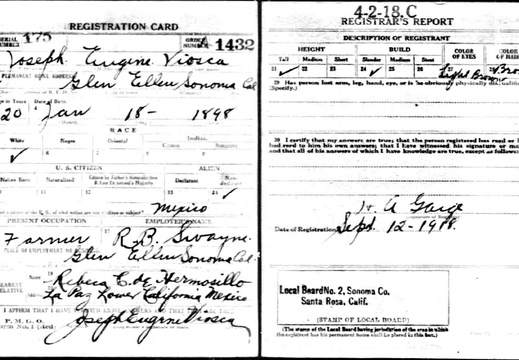 REGISTRATION CARD
SERIAL NUMBER 175
ORDER NUMBER 1432
Joseph Eugene Viosca
PERMANENT HOME ADDRESS
Glen Ellen Sonoma Cal
Age in Years
Date of Birth
20 Jan 18- 1898
RACE
White
Negro
Oriental
Indian
Citizen
U. S. CITIZEN
ALIEN
Native Born
Naturalized
Citizen by Father's Naturalization
Before Registrant's Majority
Declarant
Mexico
PRESENT OCCUPATION
EMPLOYER'S NAME
Farmer
R. B. Swayne
Glen Ellen Sonoma Cal.
NEAREST RELATIVE
Name
Rebeca C. de Hermosillo
La Paz Lower California Mexico
I AFFIRM THAT I HAVE
P. M. G. O.
Joseph Eugene Viosca
4-2-18. C
REGISTRAR'S REPORT
DESCRIPTION OF REGISTRANT
HEIGHT
BUILD
COLOR OF EYES
COLOR
Tall
Medium
Short
Slender
Medium
Stout
21
22
23
24
25
26
Light Brown
29 Has person lost arm, leg, hand, eye, or is he obviously physically
(Specify.)
30 I certify that my answers are true; that the person registered has read or
had read to him his own answers; that I have witnessed his signature or
and that all of his answers of which I have knowledge are true, except as follows:
Date of Registration Sept. 12-1918.
Local Board No. 2, Sonoma Co.
Santa Rosa, Calif.
(STAMP OF LOCAL BOARD)
(The stamp of the Local Board having jurisdiction of the area in which
the registrant has his permanent home shall be placed in this box.)